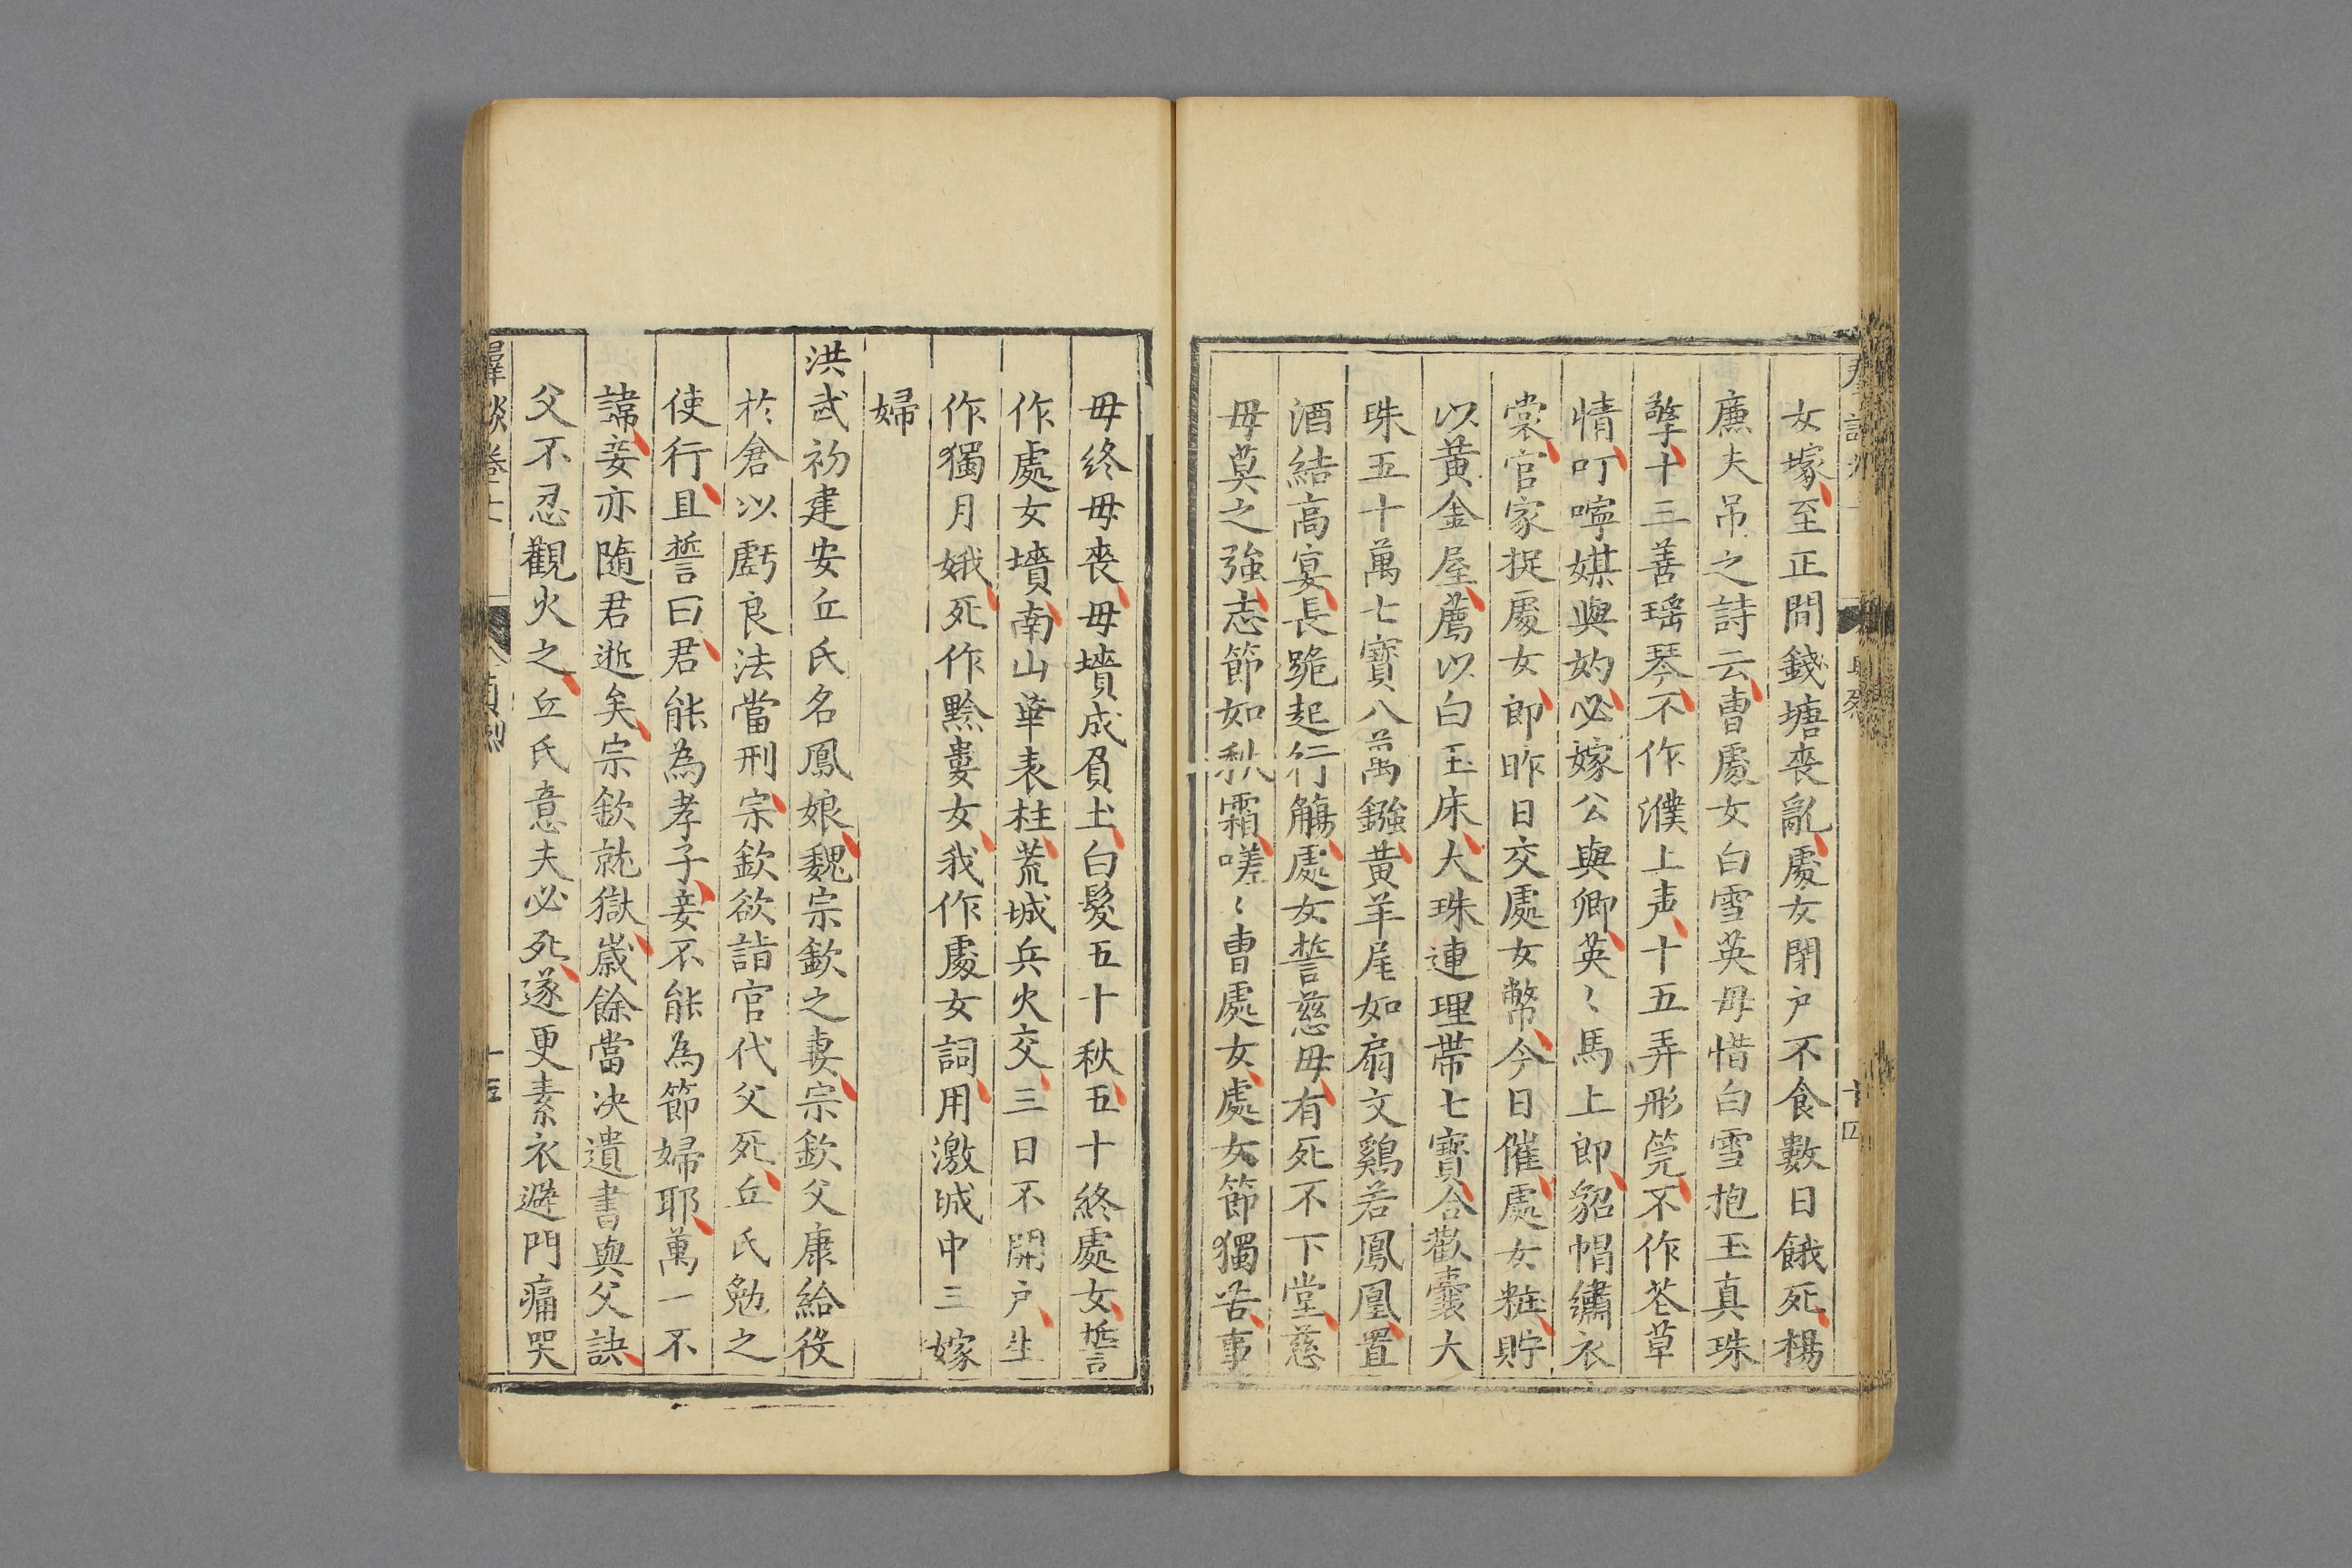 女塚至正間錢塘喪亂處女閉戶不食數日餓死楊
廉夫吊之詩云曹處女白雪英毋惜白雪抱玉真珠
擎十三善瑶琴不作濮上声十五弄形筦不作芲草
情叮嚀媒與妁必嫁公與卿英〻馬上郎貂帽繡衣
裳官家捉處女郎昨日交處女幣今日催處女粧貯
以黃金屋薦以白玉床大珠連理帶七寶合歡囊大
珠五十萬七寶八萬鏹黃羊尾如扇文鷄若鳳凰置
酒結高宴長跪起行觴處女誓慈毋有死不下堂慈
毋莫之強志節如秋霜嗟〻曹處女處女節獨苦事
毋終毋喪毋墳成負土白髮五十秋五十終處女誓
作處女墳南山華表柱荒城兵火交三日不開戶生
作獨月娥死作黔婁女我作處女詞用激城中三嫁
婦
洪武初建安丘氏名鳳娘魏宗欽之妻宗欽父康給役
於倉以虧良法當刑宗欽欲詣官代父死丘氏勉之
使行且誓曰君能為孝子妾不能為節婦耶萬一不
諱妾亦隨君逝矣宗欽就獄歲餘當决遺書與父訣
父不忍觀火之丘氏意夫必死遂更素衣避門痛哭